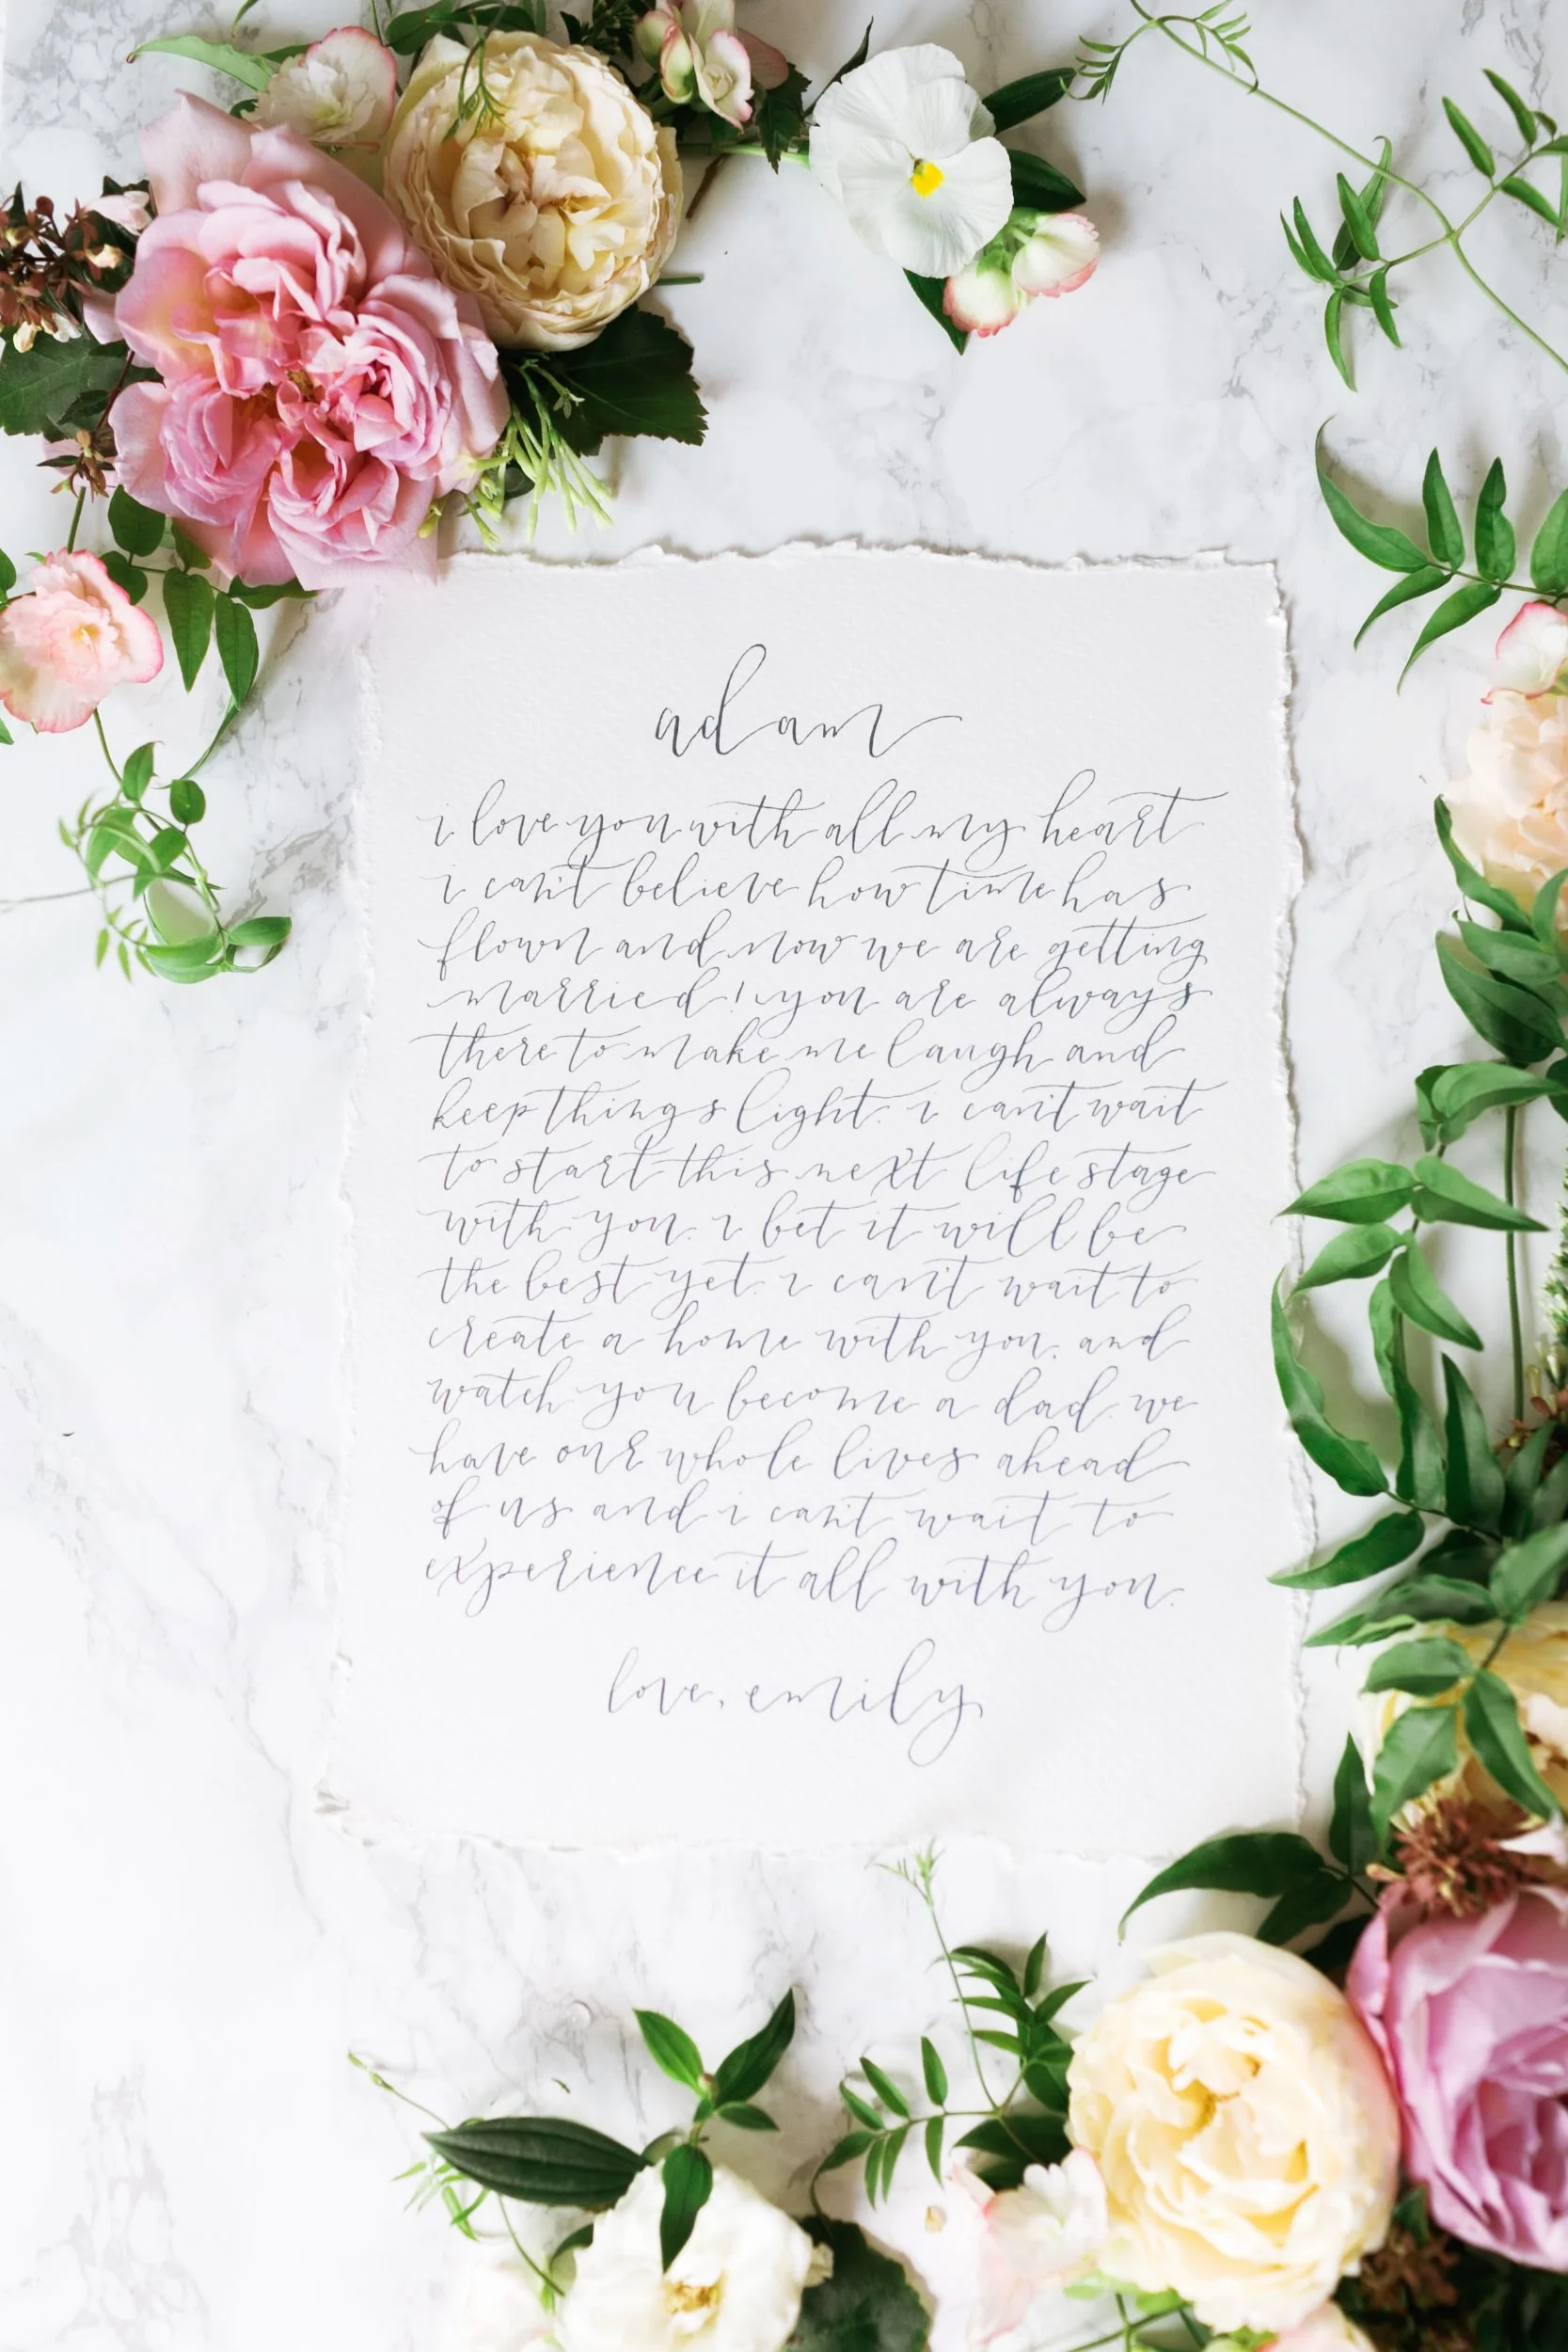 adam
i love you with all my heart
i can't believe how time has
flown and now we are getting
married! you are always
there to make me laugh and
keep things light. i can't wait
to start this next life stage
with you. i bet it will be
the best yet. i can't wait to
create a home with you. and
watch you become a dad. we
have our whole lives ahead
of us and i can't wait to
experience it all with you.
love, emily